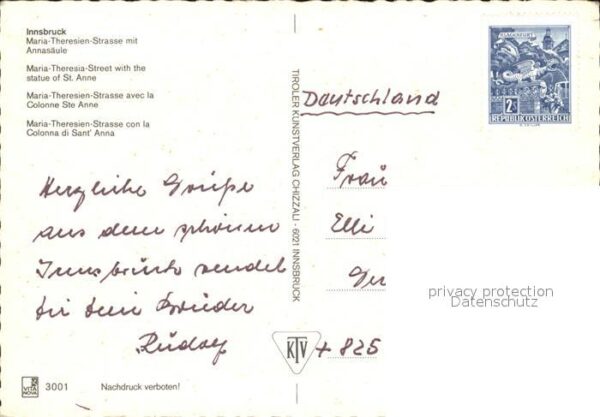 Innsbruck
Maria-Theresien-Strasse mit
Annasäule
Maria-Theresia-Street with the
statue of St. Anne
Maria-Theresien-Strasse avec la
Colonne Ste Anne
Maria-Theresien-Strasse con la
Colonna di Sant' Anna
Herzliche Grüße
aus dem schönen
Innsbruck sendet
dir dein Bruder
Rudolf
VITA
NOVA
3001
Nachdruck verboten!
TIROLER KUNSTVERLAG CHIZZALI · 6021 INNSBRUCK
KTV
+ 825
KLAGENFURT
2S
REPUBLIK ÖSTERREICH
Deutschland
Frau
Elli
privacy protection
Datenschutz